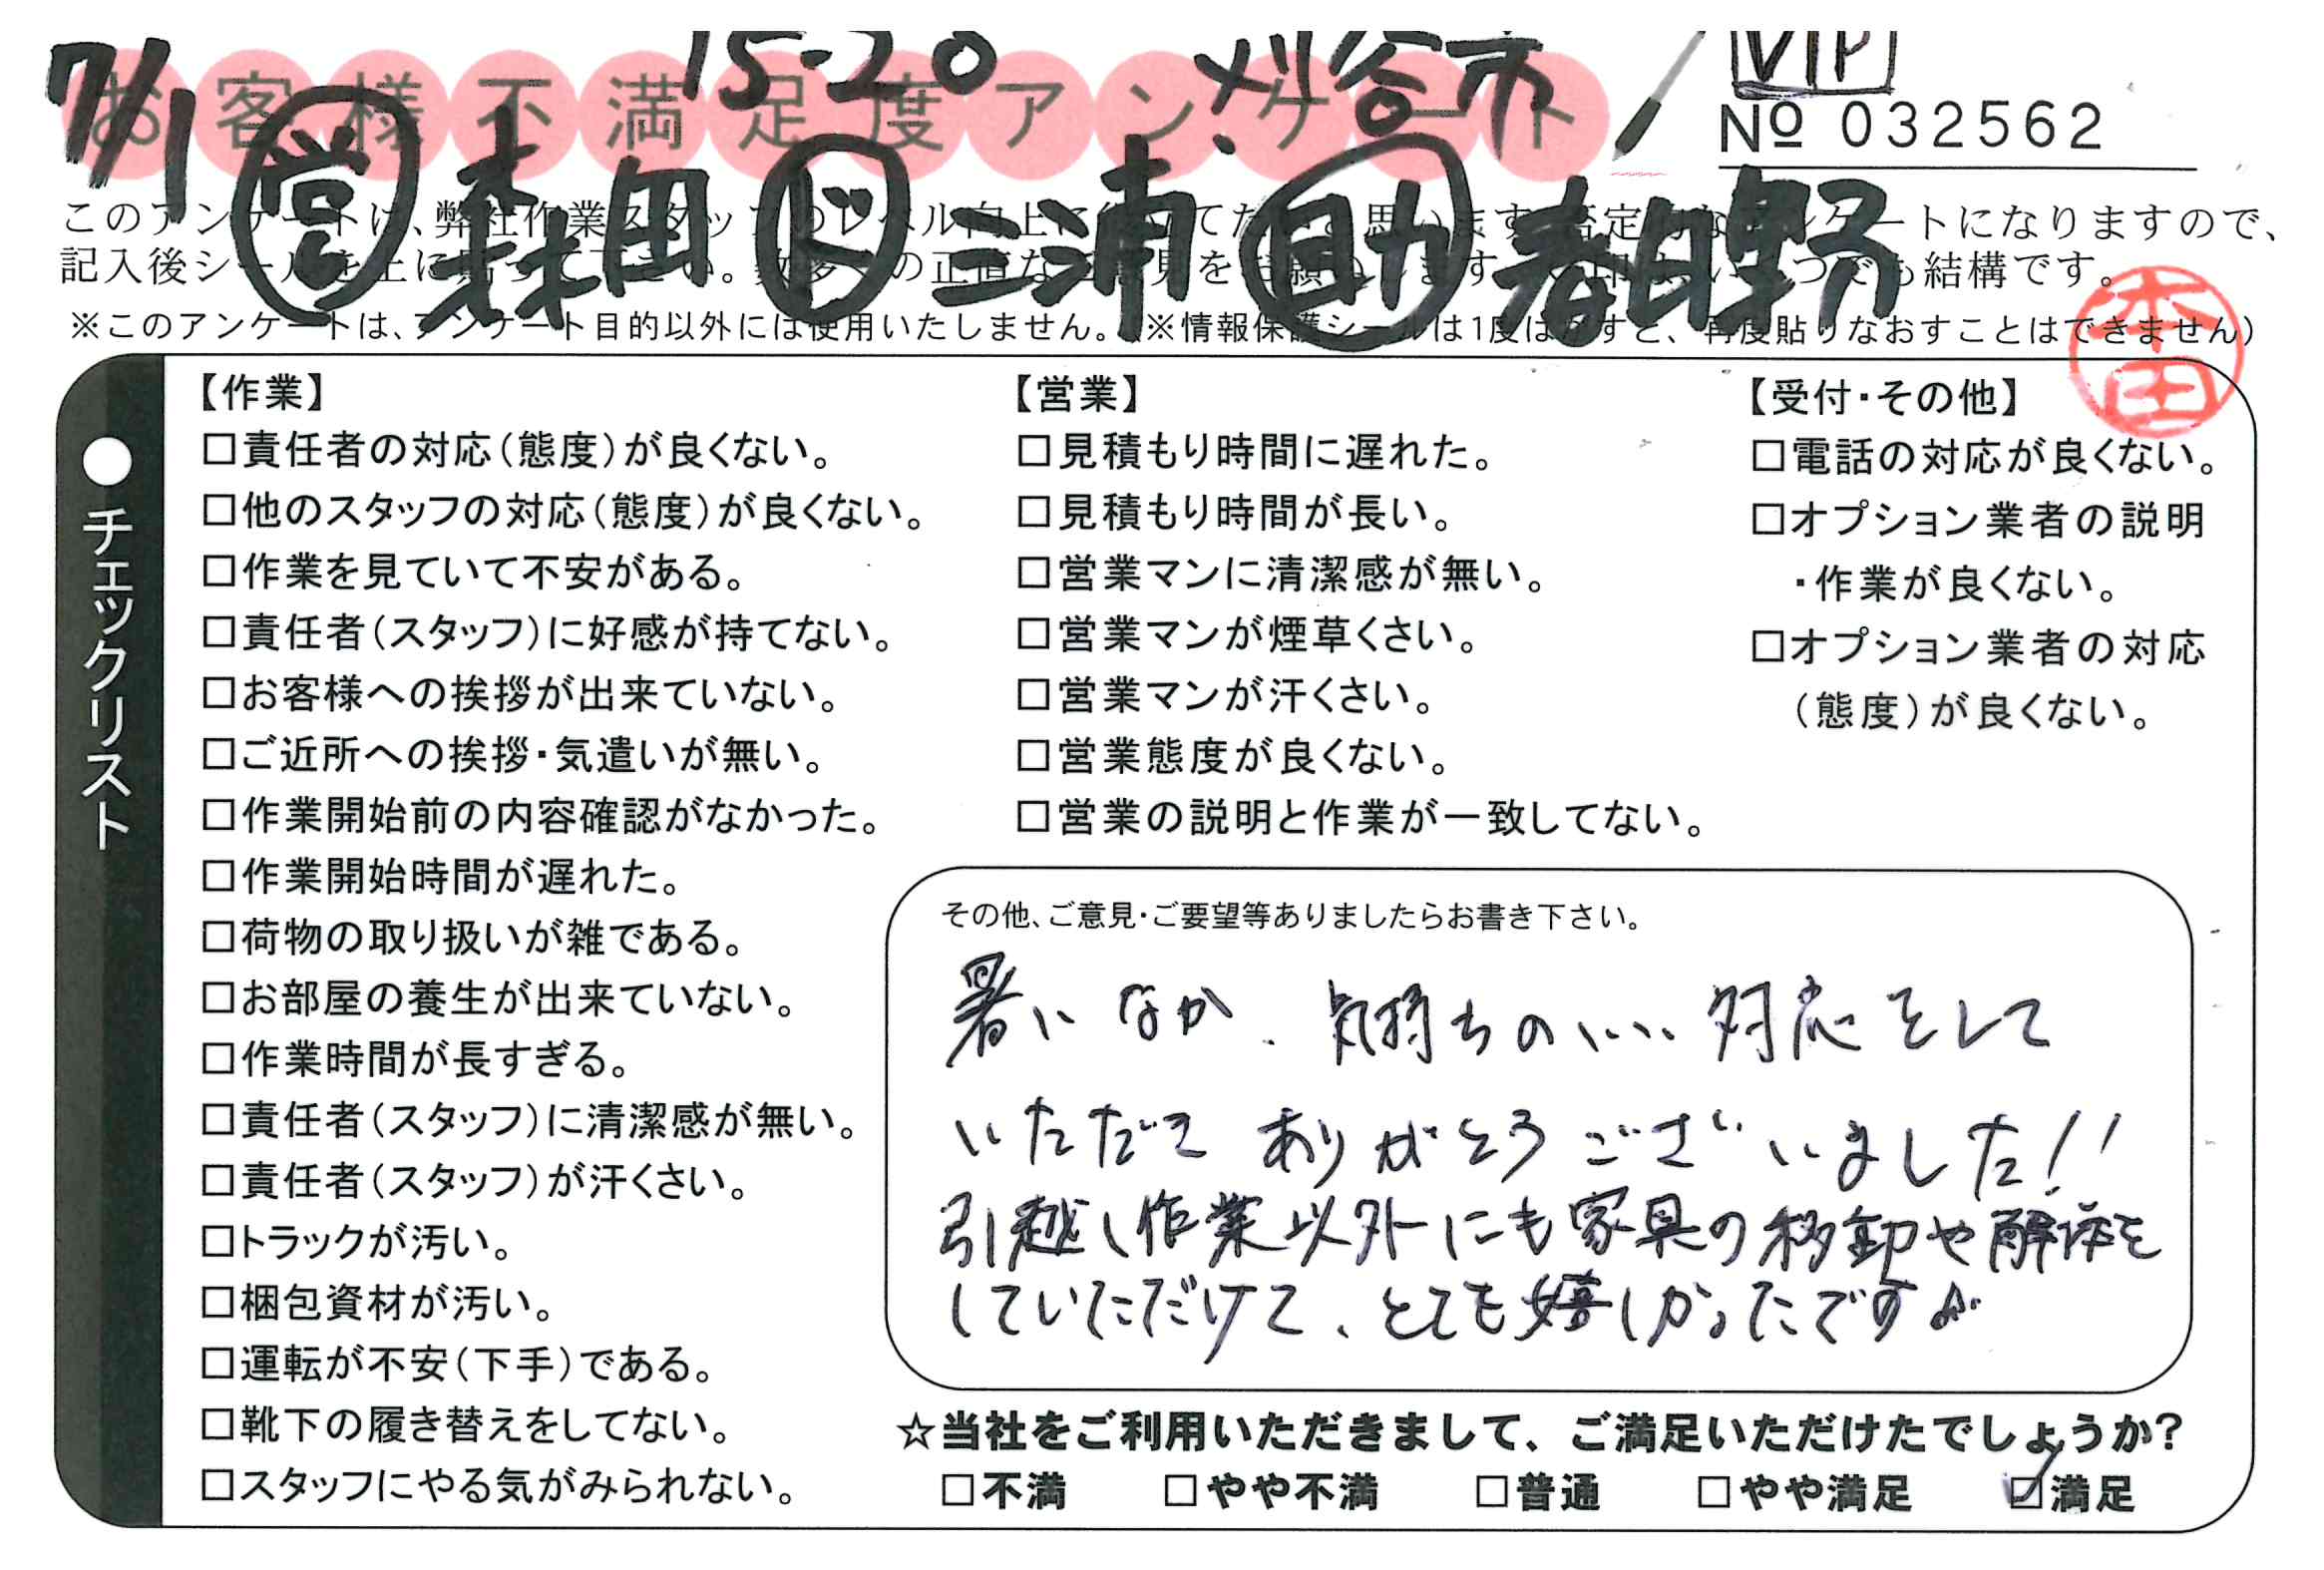 7/1 15-20 刈谷市 VIP
お客様不満足度アンケート
№ 032562
営 森田 ド 三浦 助 春日野
このアンケートは、弊社作業スタッフのレベル向上に
アンケートになりますので、
記入後シールを上に貼って下さい。
結構です。
※このアンケートは、アンケート目的以外には使用いたしません。(※情報保護シールは1度はがすと、再度貼りなおすことはできません)
本田
●チェックリスト
【作業】
□責任者の対応(態度)が良くない。
□他のスタッフの対応(態度)が良くない。
□作業を見ていて不安がある。
□責任者(スタッフ)に好感が持てない。
□お客様への挨拶が出来ていない。
□ご近所への挨拶・気遣いが無い。
□作業開始前の内容確認がなかった。
□作業開始時間が遅れた。
□荷物の取り扱いが雑である。
□お部屋の養生が出来ていない。
□作業時間が長すぎる。
□責任者(スタッフ)に清潔感が無い。
□責任者(スタッフ)が汗くさい。
□トラックが汚い。
□梱包資材が汚い。
□運転が不安(下手)である。
□靴下の履き替えをしてない。
□スタッフにやる気がみられない。
【営業】
□見積もり時間に遅れた。
□見積もり時間が長い。
□営業マンに清潔感が無い。
□営業マンが煙草くさい。
□営業マンが汗くさい。
□営業態度が良くない。
□営業の説明と作業が一致してない。
【受付・その他】
□電話の対応が良くない。
□オプション業者の説明
・作業が良くない。
□オプション業者の対応
(態度)が良くない。
その他、ご意見・ご要望等ありましたらお書き下さい。
暑いなか、気持ちのいい対応をして
いただきありがとうございました!!
引越し作業以外にも家具の移動や解体を
していただけて、とても嬉しかったです♪
☆当社をご利用いただきまして、ご満足いただけたでしょうか?
□不満 □やや不満 □普通 □やや満足 ☑満足